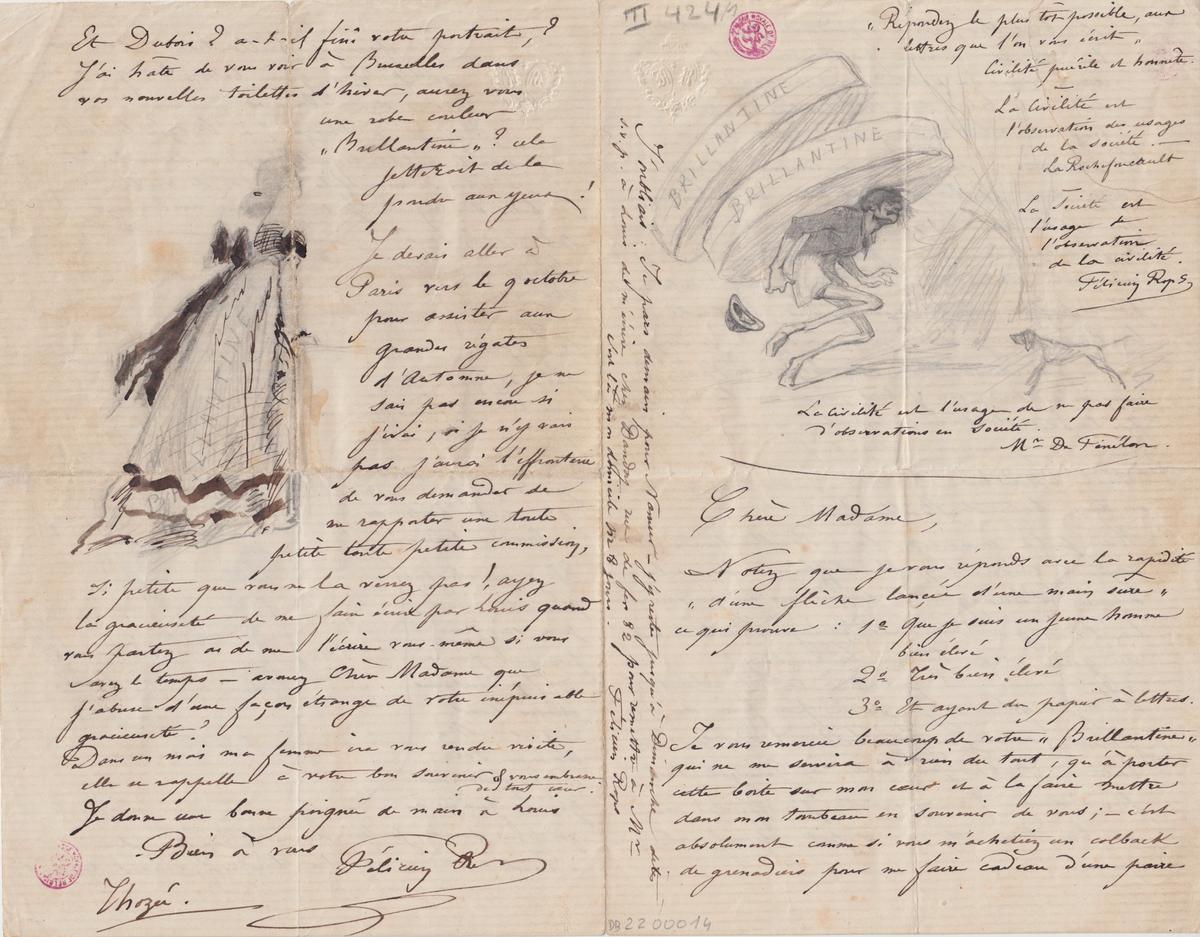 III 424/1
„Répondez le plus tôt possible, aux
lettres que l'on vous écrit"
Civilité puérile et honnête.
La Civilité est
l'observation des usages
de la société. —
La Rochefoucault
La Société est
l'usage de
l'observation
de la civilité.
Félicien Rops
BRILLANTINE
BRILLANTINE
La civilité est l'usage de ne pas faire
d'observations en société.
Mr De Fénélon.
Chère Madame,
Notez que je vous réponds avec la rapidité
„d'une flèche lancée d'une main sûre"
ce qui prouve : 1o Que je suis un jeune homme
bien élevé
2o Très bien élevé
3o Et ayant du papier à lettres.
Je vous remercie beaucoup de votre „Brillantine"
qui ne me servira à rien du tout, qu'à porter
cette boîte sur mon cœur et à la faire mettre
dans mon tombeau en souvenir de vous ; — c'est
absolument comme si vous m'achetiez un colback
de grenadiers pour me faire cadeau d'une paire
Et Dubois ? a-t-il fini votre portrait, ?
J'ai hâte de vous voir à Bruxelles dans
vos nouvelles toilettes d'hiver, aurez vous
une robe couleur
„Brillantine" ? cela
jetterait de la
poudre aux yeux !
Je devais aller à
Paris vers le 9 octobre
pour assister aux
grandes régates
d'Automne, je ne
sais pas encore si
j'irai, si je n'y vais
pas j'aurai l'effronterie
de vous demander de
me rapporter une toute
petite toute petite commission,
Si petite que vous ne la verrez pas !, ayez
la gracieuseté de me faire écrire par Louis quand
vous partez ou de me l'écrire vous-même si vous
avez le temps — avouez Chère Madame que
j'abuse d'une façon étrange de votre inépuisable
gracieuseté ?
Dans un mois ma femme ira vous rendre visite,
elle se rappelle à votre bon souvenir & vous embrasse
de tout cœur.
Je donne une bonne poignée de main à Louis
Bien à vous
Félicien Rops
Thozée.
BRILLANTINE
J'oubliais : Je pars demain pour Namur — j'y reste jusqu'à Dimanche
s.v.p. à dous de m'écrire chez Dandoy rue de fer 82 pour remettre à Mr
mon domicile 8 jours. Félicien Rops
DB2200014